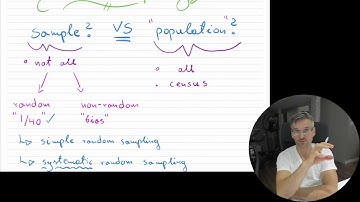 sample? VS "population"?
• not all • all
• census
random non-random
"1/40" ✓ "bias"
↳ simple random sampling
↳ systematic random sampling